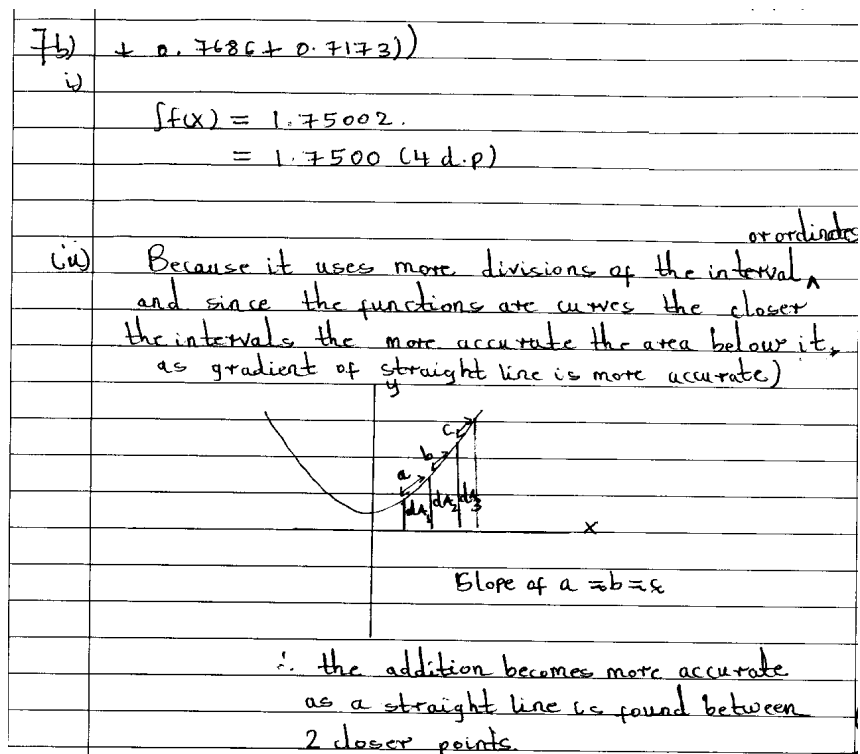 7b) + 0.7686 + 0.7173))
i)
∫f(x) = 1.75002.
= 1.7500 (4 d.p)
or ordinates
(ii) Because it uses more divisions of the interval ^
and since the functions are curves the closer
the intervals the more accurate the area below it,
as gradient of straight line is more accurate)
y
c
b
a
dA₁ dA₂ dA₃
x
Slope of a ≈ b ≈ c
∴ the addition becomes more accurate
as a straight line is found between
2 closer points.